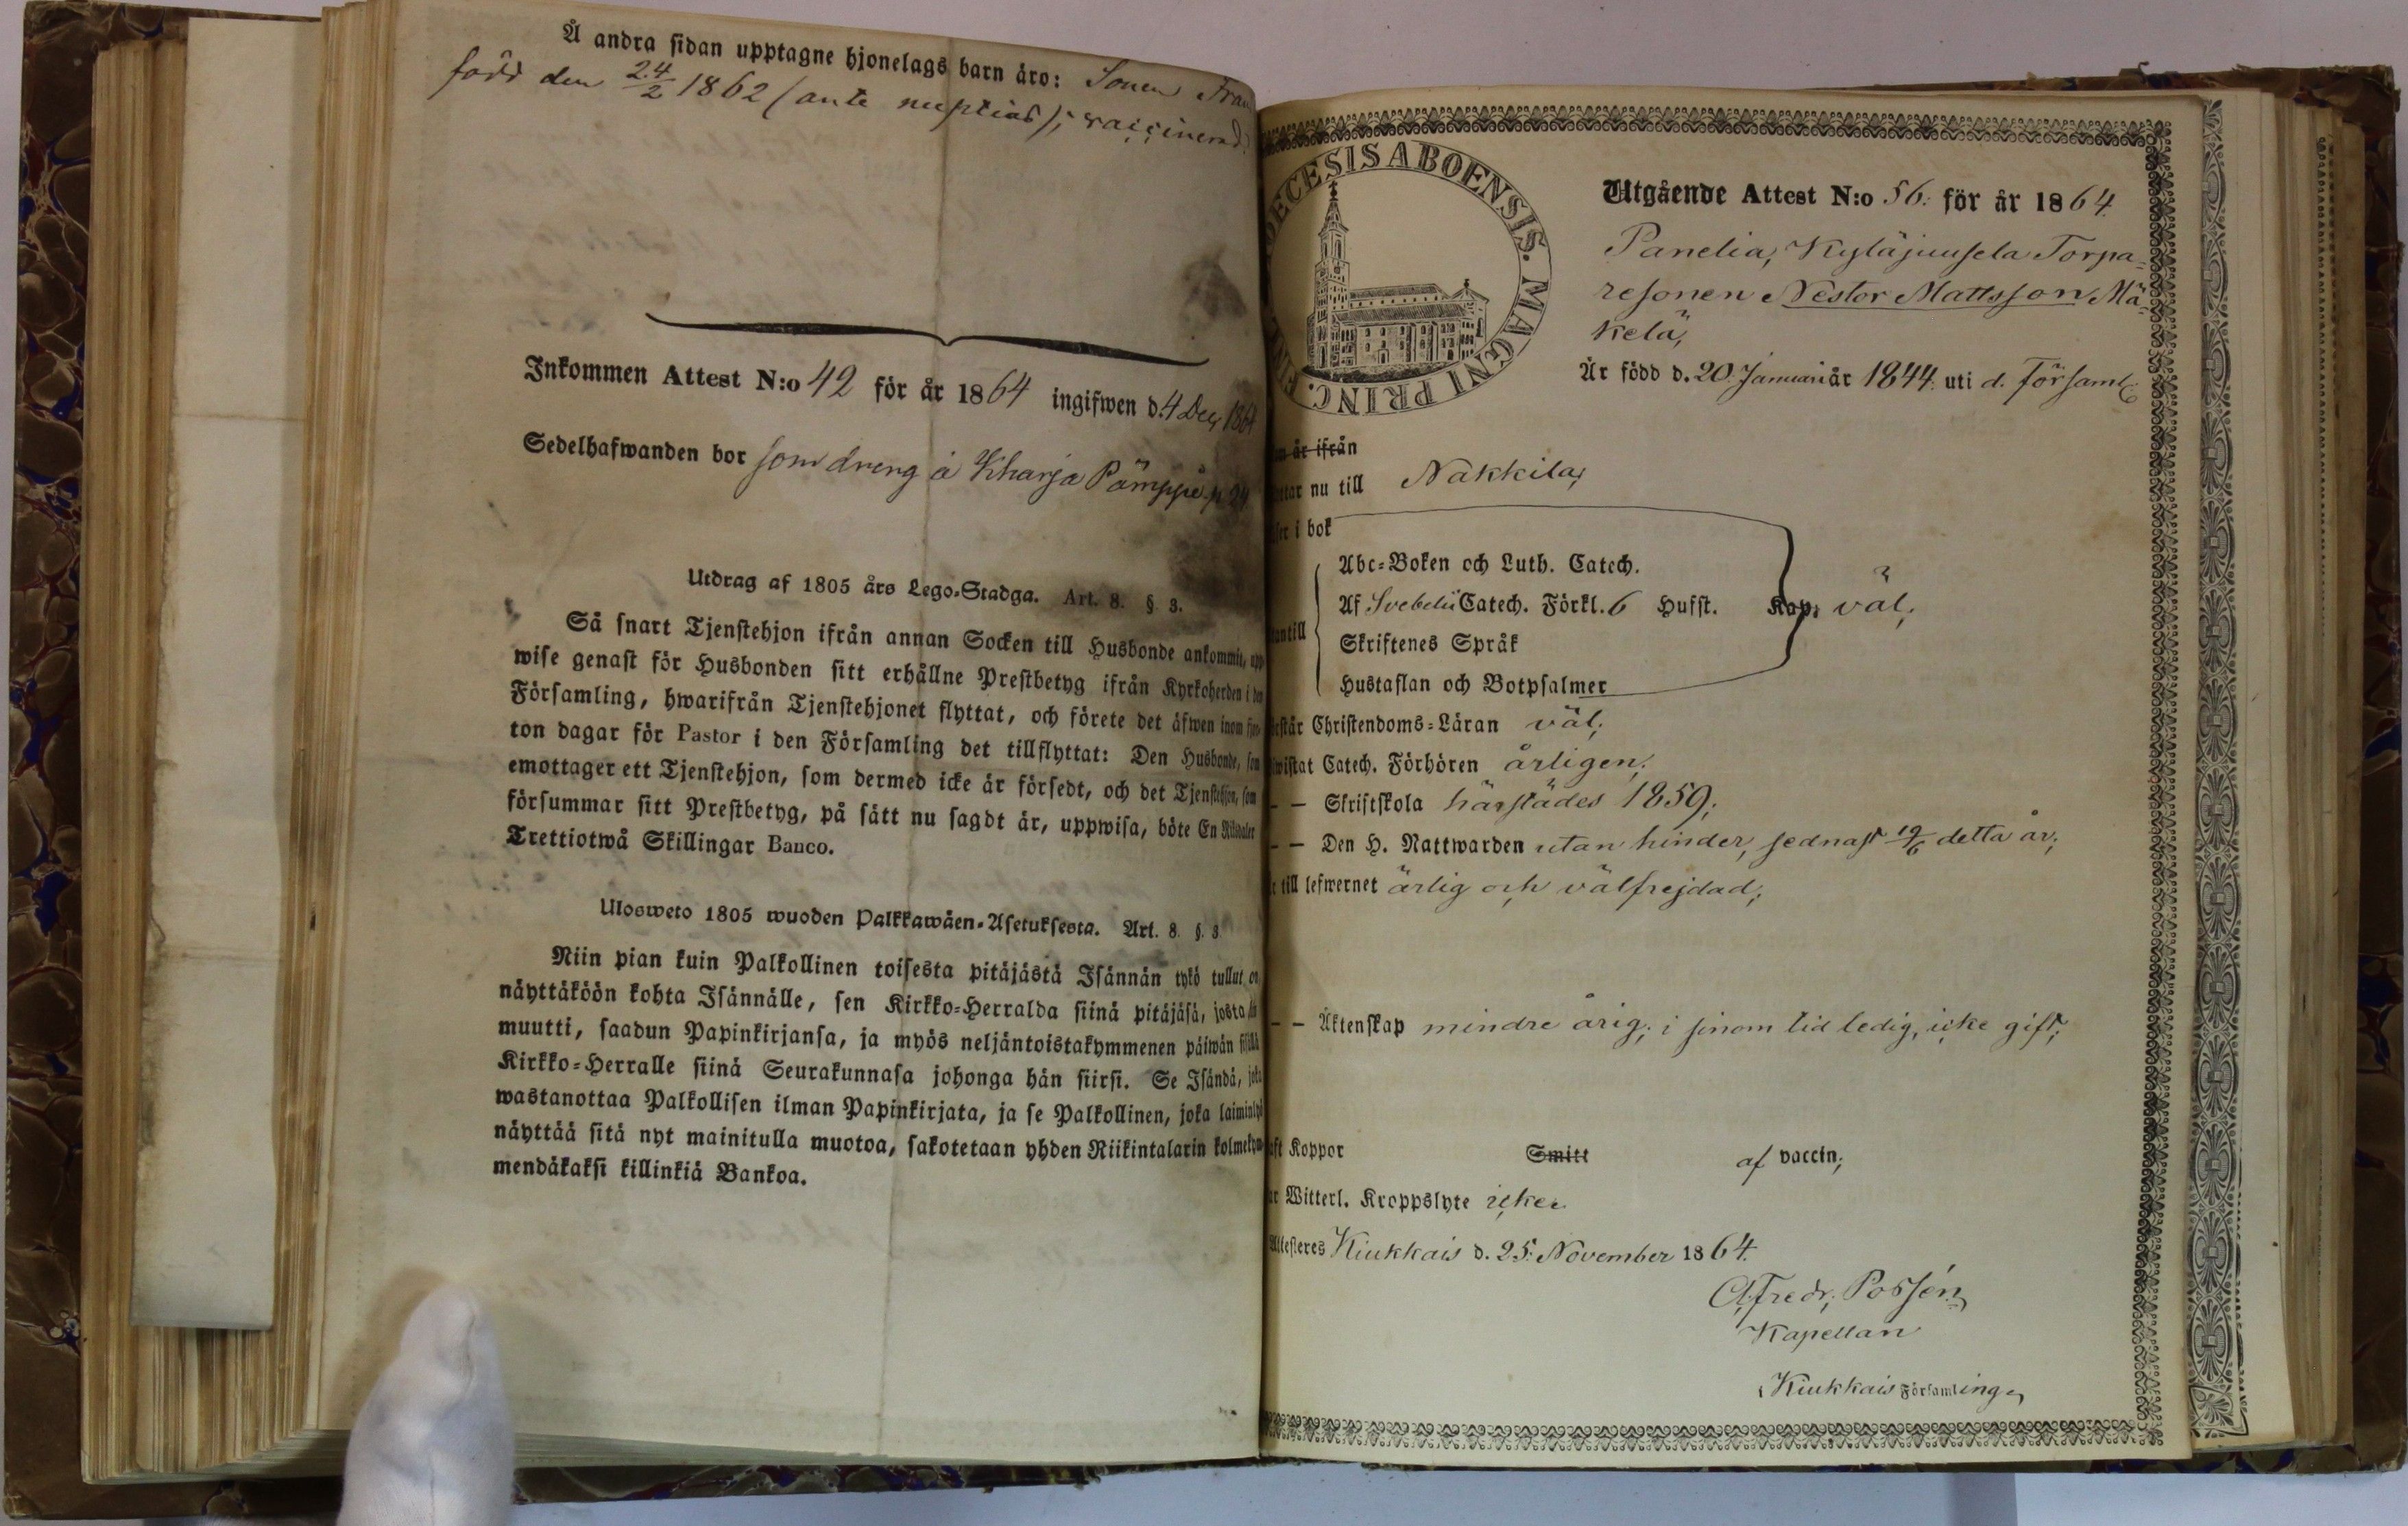 Å andra sidan upptagne hjonelags barn äro: Sonen
född den 24/2 1862 (ante nuptias); vaccinerad.
Inkommen Attest N:o 42 för år 1864 ingifwen d. 4 Dec 1864
Sedelhafwanden bor som dreng å Kharja Pämppi p
Utdrag af 1805 års Lego-Stadga. Art. 8. § 3.
Så snart Tjenstehjon ifrån annan Socken till Husbonde ankommit, upp
wise genast för Husbonden sitt erhållne Prestbetyg ifrån Kyrkoherden i den
Församling, hwarifrån Tjenstehjonet flyttat, och förete det äfwen inom fjor
ton dagar för Pastor i den Församling det tillflyttat: Den Husbonde, som
emottager ett Tjenstehjon, som dermed icke är försedt, och det Tjenstehjon, som
försummar sitt Prestbetyg, på sätt nu sagdt är, uppwisa, böte En Riksdaler
Trettiotwå Skillingar Banco.
Ulosweto 1805 wuoden Palkkawäen-Asetuksesta. Art. 8. §. 3
Niin pian kuin Palkollinen toisesta pitäjästä Isännän tykö tullut on
näyttäköön kohta Isännälle, sen Kirkko-Herralda siinä pitäjäsä, josta hän
muutti, saadun Papinkirjansa, ja myös neljäntoistakymmenen päiwän sisällä
Kirkko-Herralle siinä Seurakunnasa johonga hän siirsi. Se Isändä, joka
wastanottaa Palkollisen ilman Papinkirjata, ja se Palkollinen, joka laiminlyö
näyttää sitä nyt mainitulla muotoa, sakotetaan yhden Riikintalarin kolmekym
mendäkaksi killinkiä Bankoa.
ECESIS ABOENSIS. MAGNI PRINC. FIN
Utgående Attest N:o 56. för år 1864.
Panelia, Kyläjuusela Torpa-
resonen Nestor Mattsson Mä-
kelä,
Är född d. 20 Januari år 1844. uti d. Församl:
är ifrån
nu till Nakkila;
i bok
Abc-Boken och Luth. Catech.
Af Svebelii Catech. Förkl. 6 Hufst. Kap. väl;
antill
Skriftenes Språk
Hustaflan och Botpsalmer
står Christendoms-Läran väl;
wistat Catech. Förhören årligen;
— — Skriftskola härstädes 1859;
— — Den H. Nattwarden utan hinder, sednast 19/6 detta år;
till lefwernet ärlig och välfrejdad;
— — Äktenskap mindre årig; i sinom tid ledig, icke gift;
aft Koppor Smitt af vaccin;
Witterl. Kroppslyte icke.
Attesteres Kiukkais d. 25. November 1864.
Alfredr. Possén
Kapellan
i Kiukkais Församling